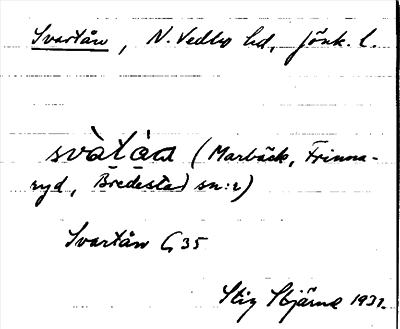 Svartån, N. Vedbo hd, Jönk. l.
svàtàa (Marbäck, Frinna-
ryd, Bredestad sn:r)
Svartån G 35
Stig Stjärne 1931.